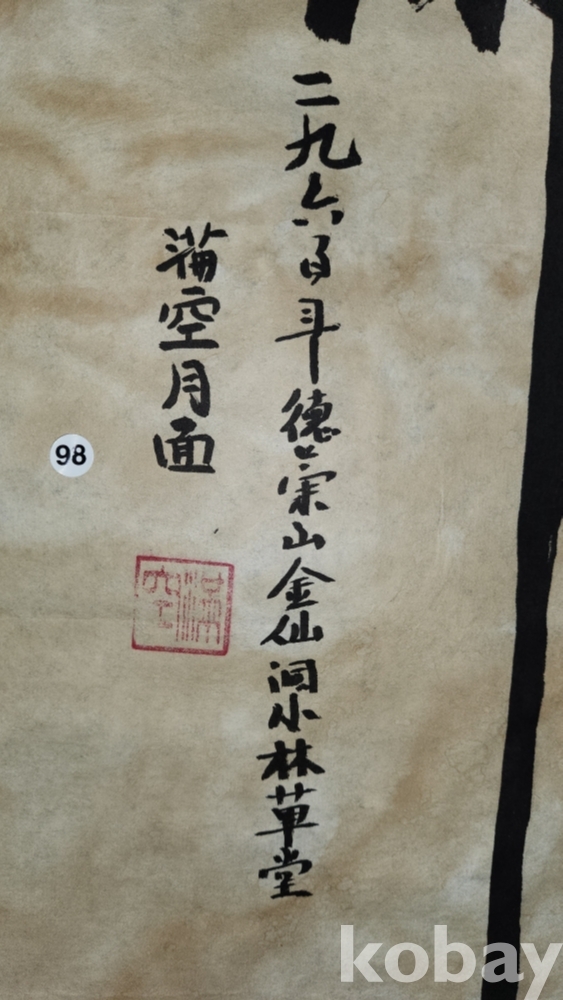 二九六 德崇山金仙洞小林草堂
滿空月面
滿空
98
kobay